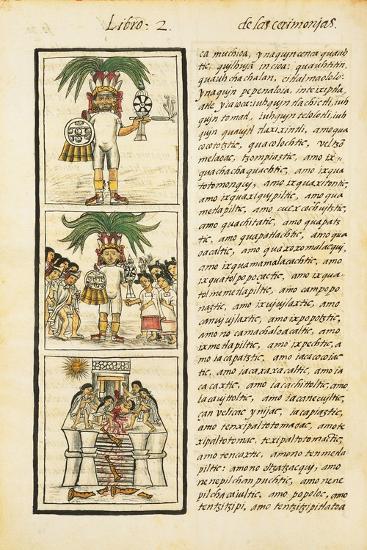 Libro. 2. de las cerimonjas.
ca muchioa, ynaqujn cenca quauh
tic, qujlhuja in cioa: quauhtitin,
quauhchachalan, citlalmaololo:
ynaqujn pepenaloia, inteixiptla,
atle yiaioca: iuhqujn tlachictli, iuh
qujn tomatl, iuhqujn telolotli, iuh
qujn quaujtl tlaxixintli, amo qua
cocototztic, quacolochtic, vel tzõ
melaoac, tzompiaztic, amo ix
quachachaquachtic, amo ixqua
totomonquj, amo ixquaxitontic,
amo ixquaxiquipiltic, amo qua
metlapiltic, amo cuexcochujtztic,
amo quachitatic, amo quapatz
tic, amo quapatlachtic, amo qua
oacaltic, amo quaxoxomalacquj,
amo ixquamamalacachtic, amo ix
quatolpopocactic, amo ixqua
tolmemetlapiltic, amo campopo
naztic, amo ixujujlaxtic, amo
canujujlaxtic, amo ixpopotztic,
amo no camachaloacaltic, amo
ixmetlapiltic, amo ixpechtic, a
mo iacapatztic, amo iacacoiac
tic, amo iacaxaxacaltic, amo ia
cacaxtic, amo iacachittoltic, amo
iacaujttoltic, amo iacanecujltic,
çan velicac ynjiac, iacapiaztic,
amo tenxipaltotomaoac, amo te
xipaltotomac, texipaltotomactic,
amo tencaxtic, amo tenmetla
piltic: amo no eltzatzacquj, amo
nenepilchanpuchtic, amo nene
pilchacaiultic, amo popoloc, amo
tentzitzipi, amo tentzitzipitlatoa